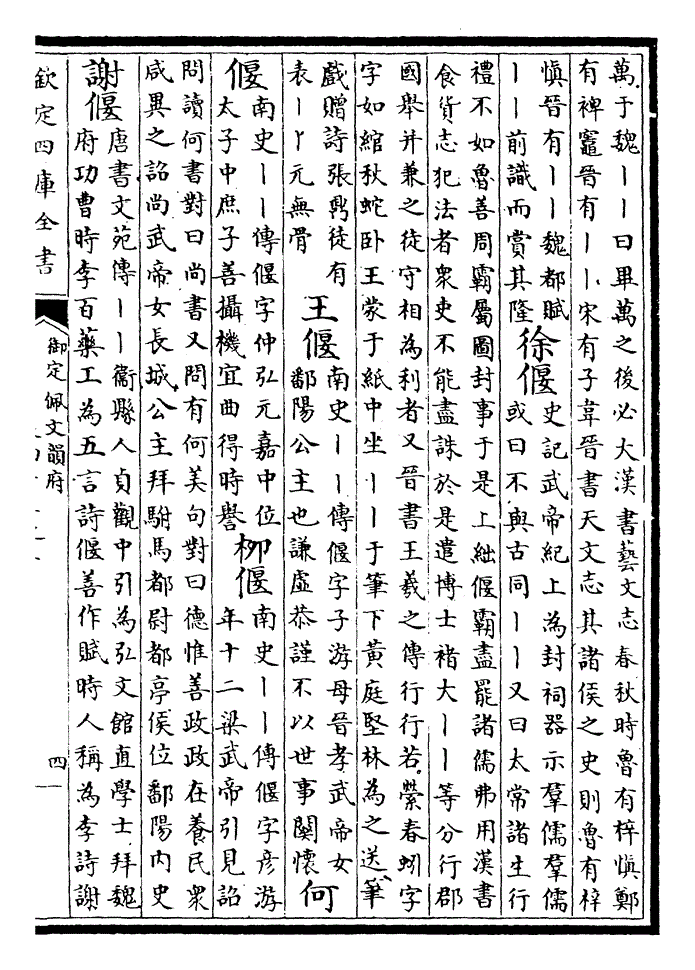 萬于魏丨丨曰畢萬之後必大漢書藝文志春秋時魯有梓愼鄭
有裨竈晉有丨丨宋有子韋晉書天文志其諸侯之史則魯有梓
愼晉有丨丨魏都賦
丨丨前識而賞其隆
徐偃
史記武帝紀上為封祠器示羣儒羣儒
或曰不與古同丨丨又曰太常諸生行
禮不如魯善周霸屬圖封事于是上絀偃霸盡罷諸儒弗用漢書
食貨志犯法者衆吏不能盡誅於是遣博士褚大丨丨等分行郡
國舉并兼之徒守相為利者又晉書王羲之傳行行若縈春蚓字
字如綰秋蛇卧王蒙于紙中坐丨丨于筆下黃庭堅林為之送筆
戲贈詩張鼎徒有
表丨丨元無骨
王偃
南史丨丨傳偃字子游母晉孝武帝女
鄱陽公主也謙虛恭謹不以世事關懷
何
偃
南史丨丨傳偃字仲弘元嘉中位
太子中庶子善攝機宜曲得時譽
柳偃
南史丨丨傳偃字彦游
年十二梁武帝引見詔
問讀何書對曰尚書又問有何美句對曰德惟善政政在養民衆
咸異之詔尚武帝女長城公主拜駙馬都尉都亭侯位鄱陽內史
謝偃
唐書文苑傳丨丨衞縣人貞觀中引為弘文館直學士拜魏
府功曹時李百藥工為五言詩偃善作賦時人稱為李詩謝
欽定四庫全書
御定佩文韻府
四